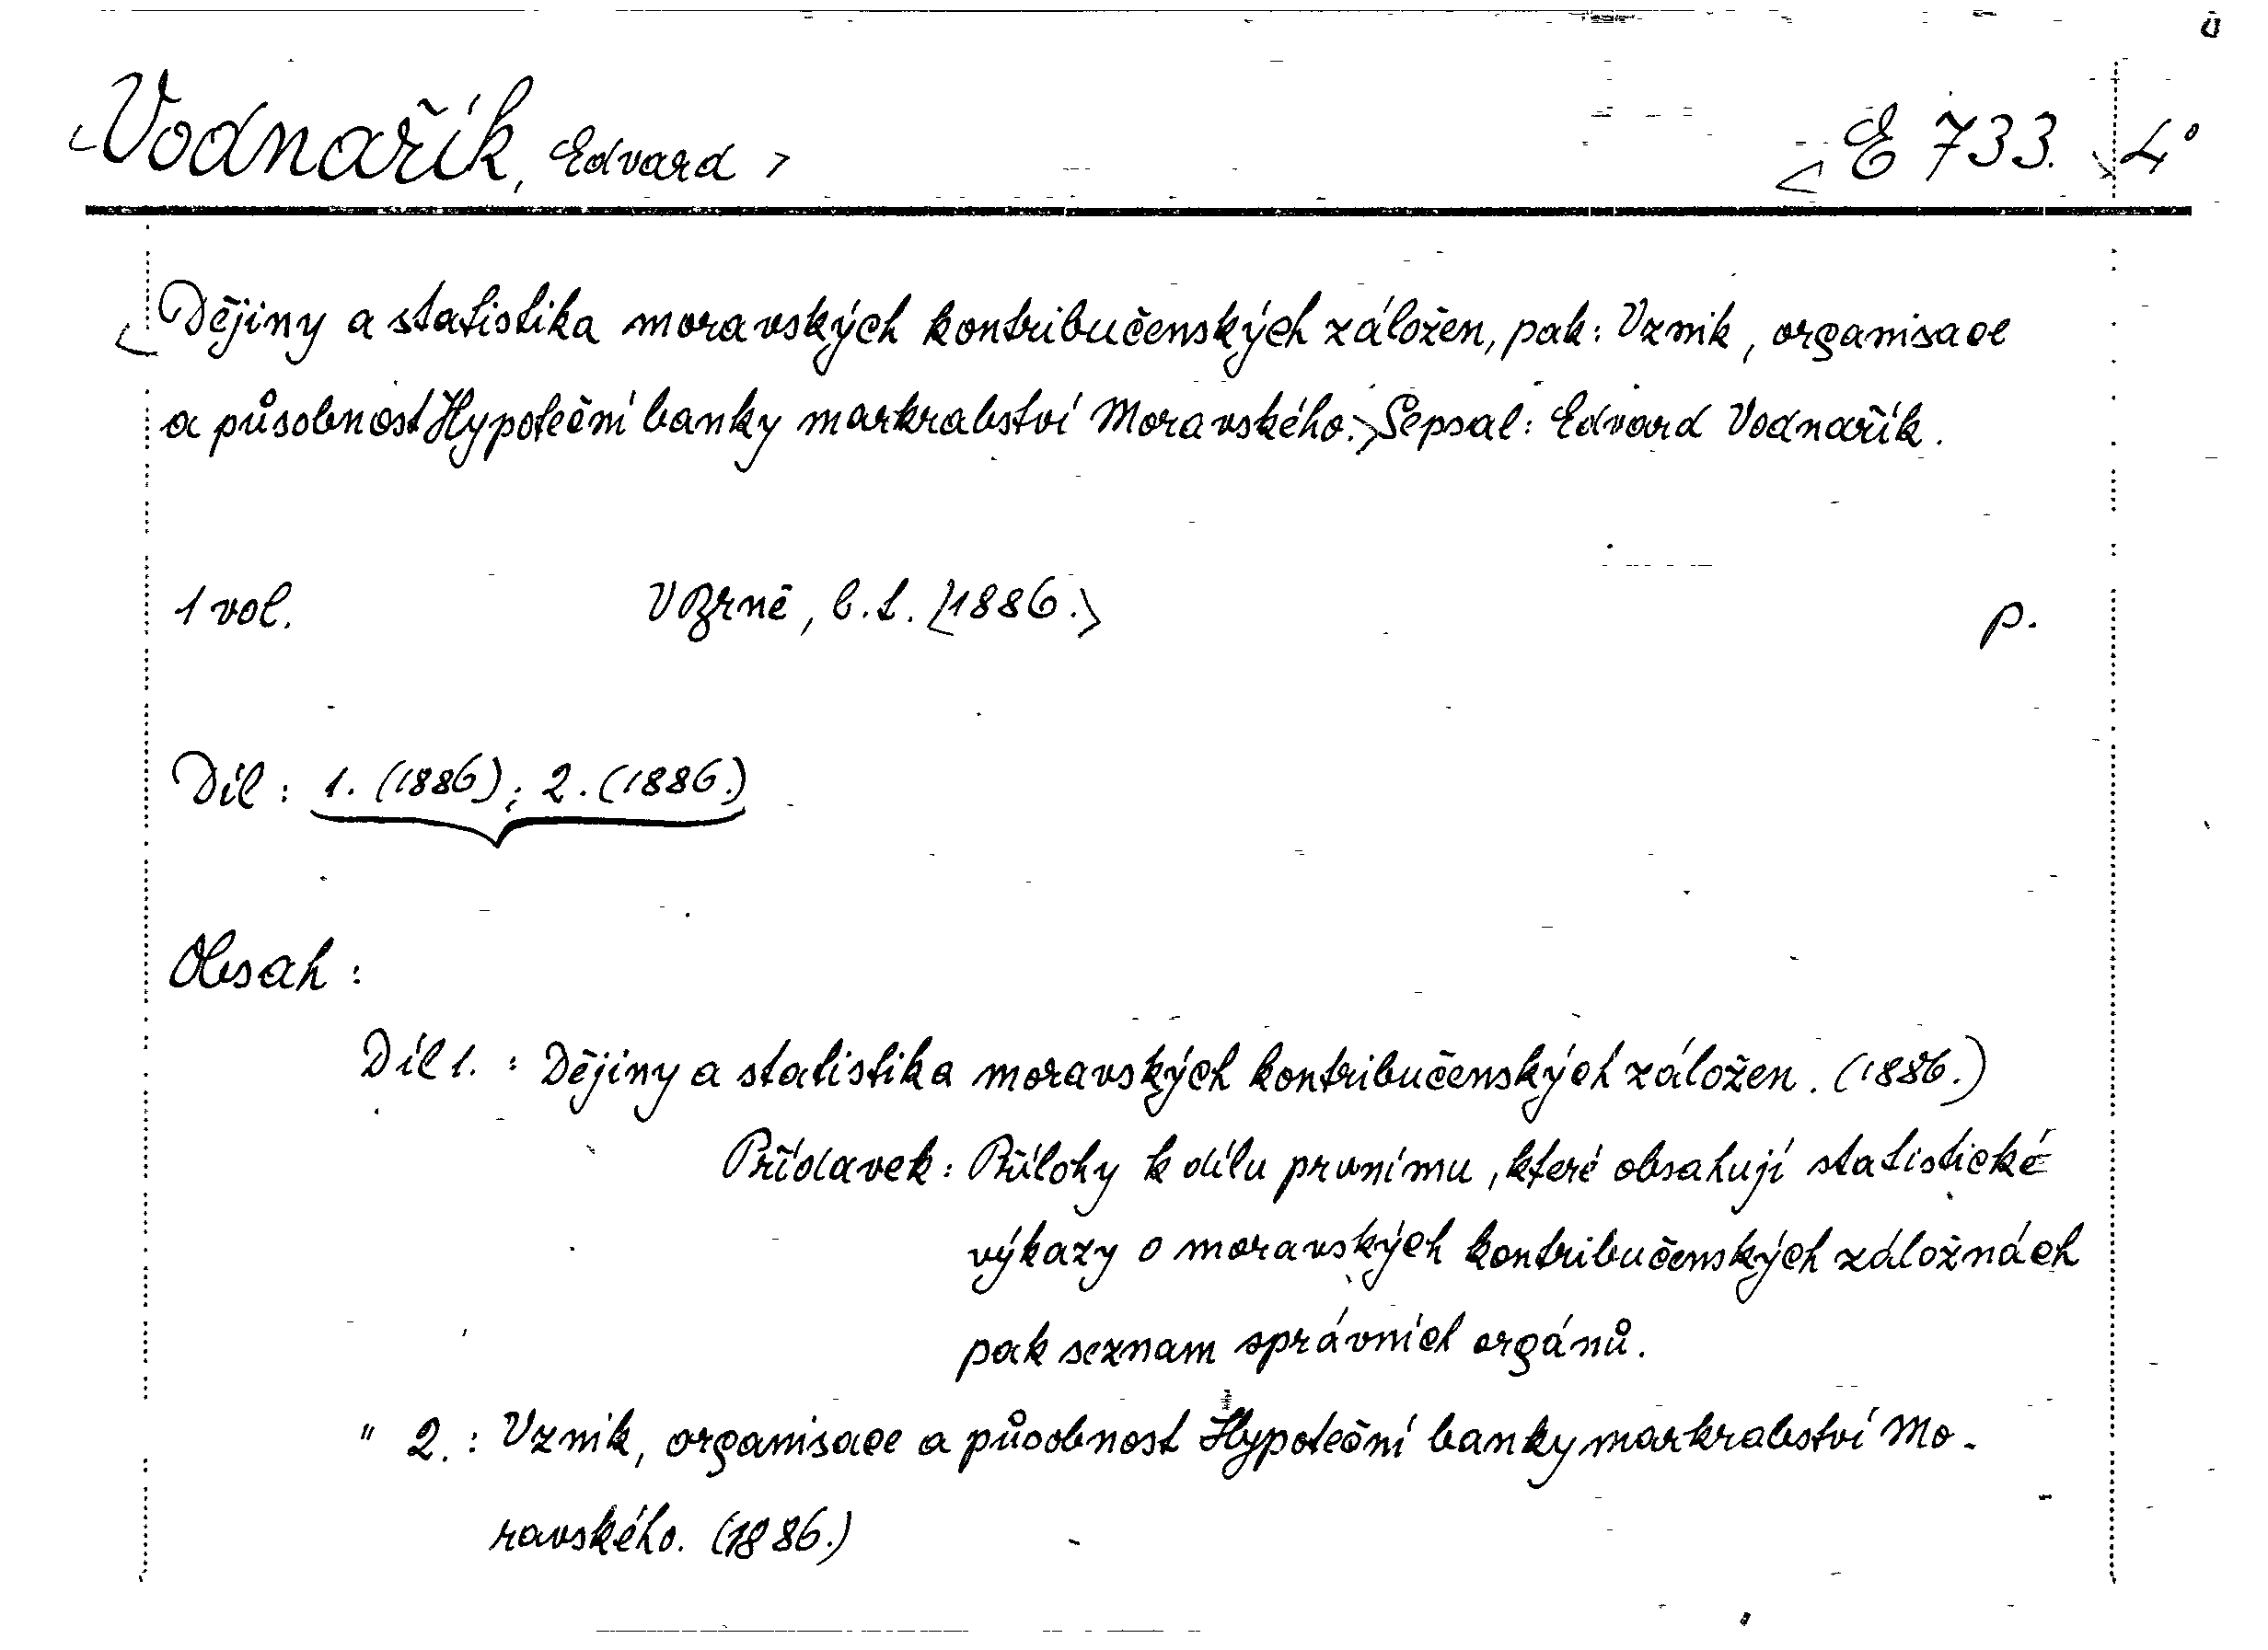 <Vodnařík, Edvard> <E 733.> 4°
<Dějiny a statistika moravských kontribučenských záložen, pak: Vznik, organisace
a působnost Hypoteční banky markrabství Moravského.> Sepsal: Edvard Vodnařík.
1 vol. V Brně, b. t. <1886.> p.
Díl: 1. (1886); 2. (1886.)
Obsah:
Díl 1. : Dějiny a statistika moravských kontribučenských záložen. (1886.)
Přídavek: Přílohy k dílu prvnímu, které obsahují statistické
výkazy o moravských kontribučenských záložnách
pak seznam správních orgánů.
" 2. : Vznik, organisace a působnost Hypoteční banky markrabství Mo-
ravského. (1886.)